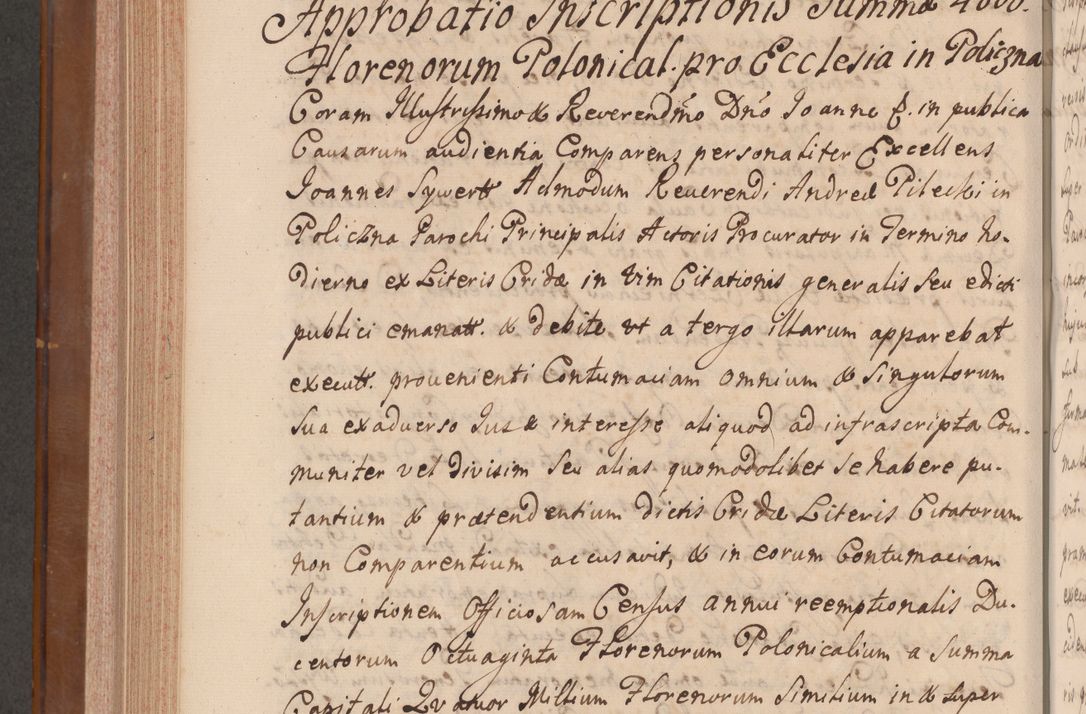 Approbatio Inscriptionis Summæ 4000.
Florenorum Polonical. pro Ecclesia in Policzna
Coram Illustrissimo & Reverendmo Dno Joanne f. in publica
Causarum audientia Comparens personaliter Excellens
Joannes Sywertt Admodum Reuerendi Andreæ Pilecki in
Policzna Parochi Principalis Actoris Procurator in Termino ho-
dierno ex Literis Cridæ in vim Citationis generalis seu edicti
publici emanatt. & debite vt a tergo illarum apparebat
executt. prouenienti Contumaciam omnium & singulorum
sua exaduerso Jus & interesse aliquod ad infrascripta Com-
muniter vel divisim seu alias quomodolibet se habere pu-
tantium & prætendentium dictis Cridæ Literis Citatorum
non Comparentium accusavit, & in eorum Contumaciam
Inscriptionem Officiosam Census annui reemptionalis Du-
centorum Octuaginta Florenorum Polonicalium a Summa
Capitali Qvatuor Millium Florenorum Similium in & super